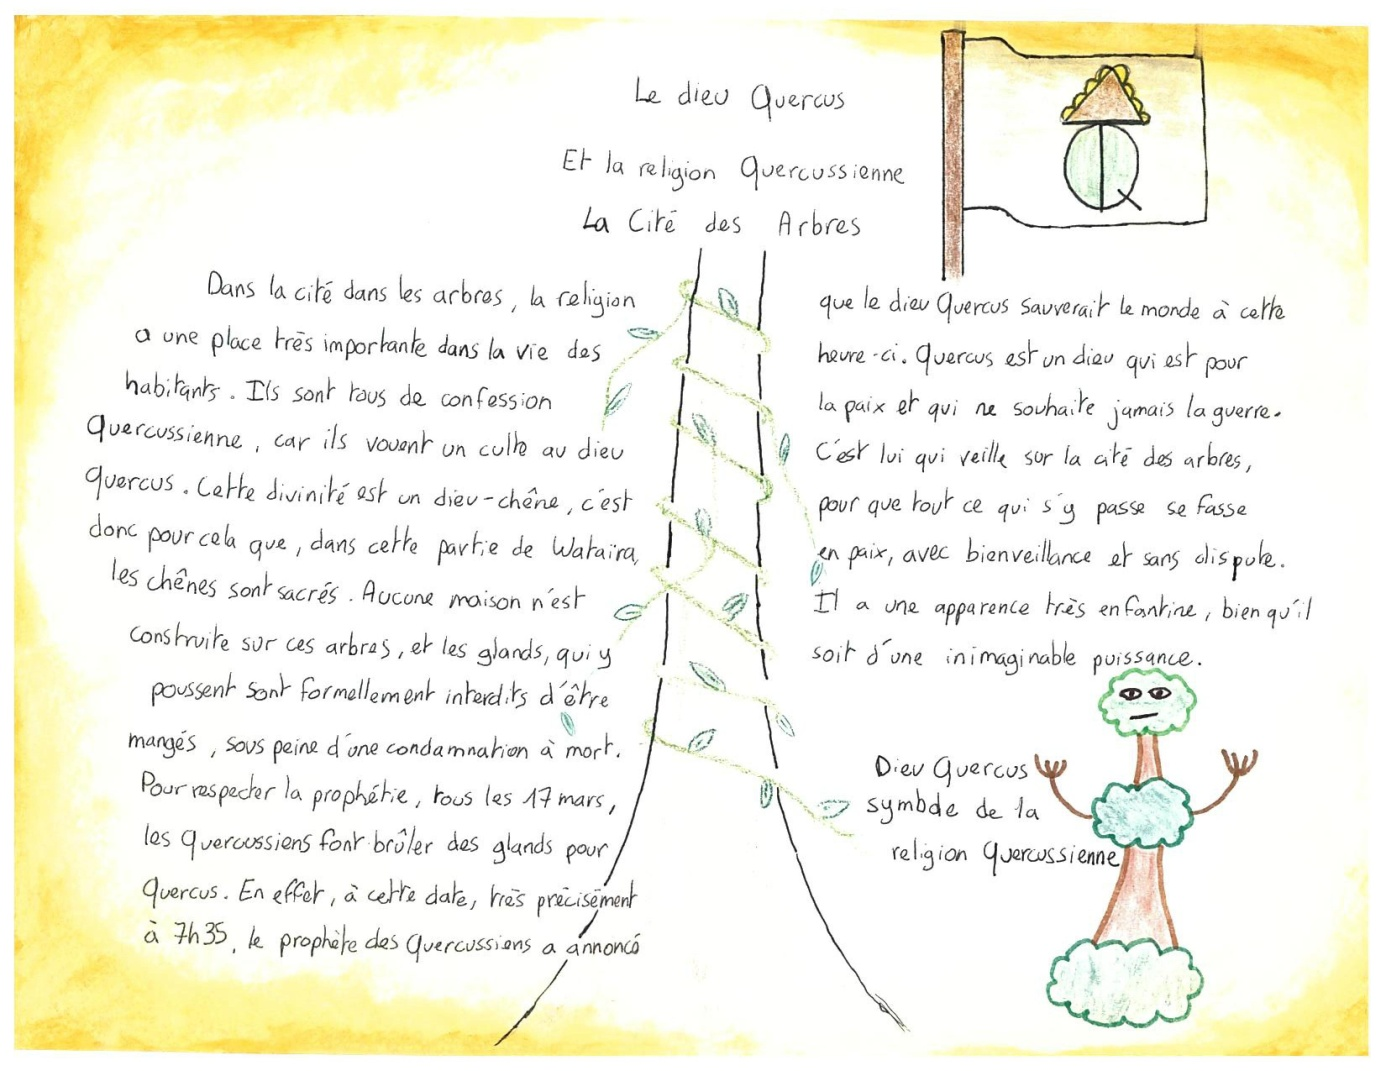 Le dieu Quercus
Et la religion Quercussienne
La Cité des Arbres
Dans la cité dans les arbres, la religion
a une place très importante dans la vie des
habitants. Ils sont tous de confession
Quercussienne, car ils vouent un culte au dieu
Quercus. Cette divinité est un dieu-chêne, c'est
donc pour cela que, dans cette partie de Wataïra,
les chênes sont sacrés. Aucune maison n'est
construite sur ces arbres, et les glands, qui y
poussent sont formellement interdits d'être
mangés, sous peine d'une condamnation à mort.
Pour respecter la prophétie, tous les 17 mars,
les Quercussiens font brûler des glands pour
Quercus. En effet, à cette date, très précisément
à 7h35, le prophète des Quercussiens a annoncé
que le dieu Quercus sauverait le monde à cette
heure-ci. Quercus est un dieu qui est pour
la paix et qui ne souhaite jamais la guerre.
C'est lui qui veille sur la cité des arbres,
pour que tout ce qui s'y passe se fasse
en paix, avec bienveillance et sans dispute.
Il a une apparence très enfantine, bien qu'il
soit d'une inimaginable puissance.
Dieu Quercus
symbole de la
religion Quercussienne